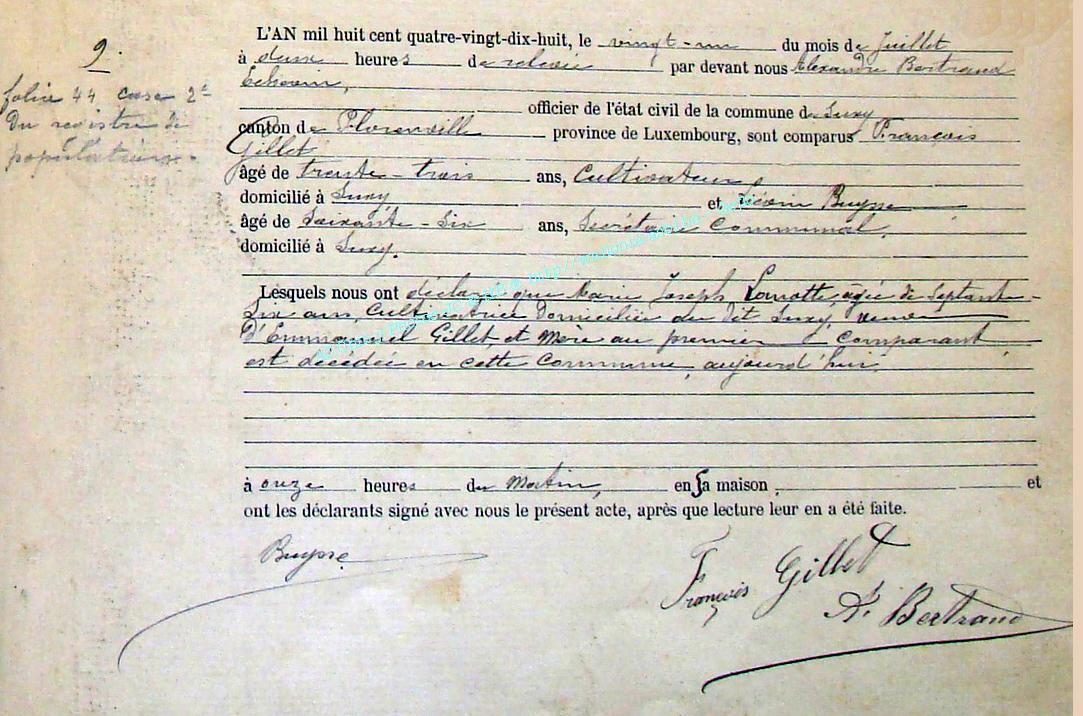 9.
folio 44 case 2e
du registre de
population.
L'AN mil huit cent quatre-vingt-dix-huit, le vingt-un du mois de Juillet
à deux heures de relevée par devant nous Alexandre Bertrand
Echevin,
officier de l'état civil de la commune de Suxy
canton de Florenville province de Luxembourg, sont comparus François
Gillet
âgé de trente-trois ans, Cultivateur,
domicilié à Suxy et Buysse
âgé de Soixante-Six ans, Secrétaire Communal,
domicilié à Suxy.
Lesquels nous ont déclaré que Marie Joseph Lamotte, agée de Septante-
Six ans, Cultivatrice domiciliée au dit Suxy, veuve
d'Emmanuel Gillet et Mère au premier Comparant
est décédée en cette Commune, aujourd'hui
à onze heures du Matin, en Sa maison et
ont les déclarants signé avec nous le présent acte, après que lecture leur en a été faite.
Buysse
François Gillet
A. Bertrand